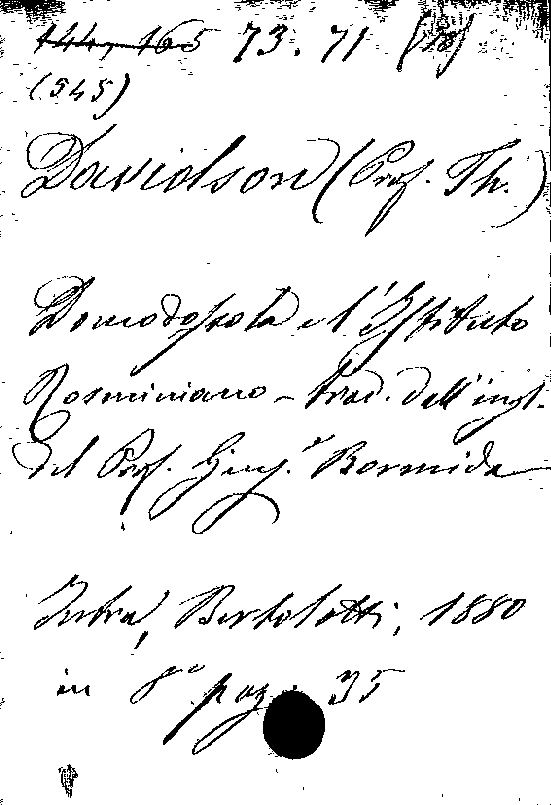 144, 165 73. 71 (18)
(545)
Davidson (Prof. Th.)
Domodossola e l'Istituto
Rosminiano - trad. dall'ingl.
del Prof. Gius.e Bormida
Intra, Bertolotti, 1880
in 8° pag. 35